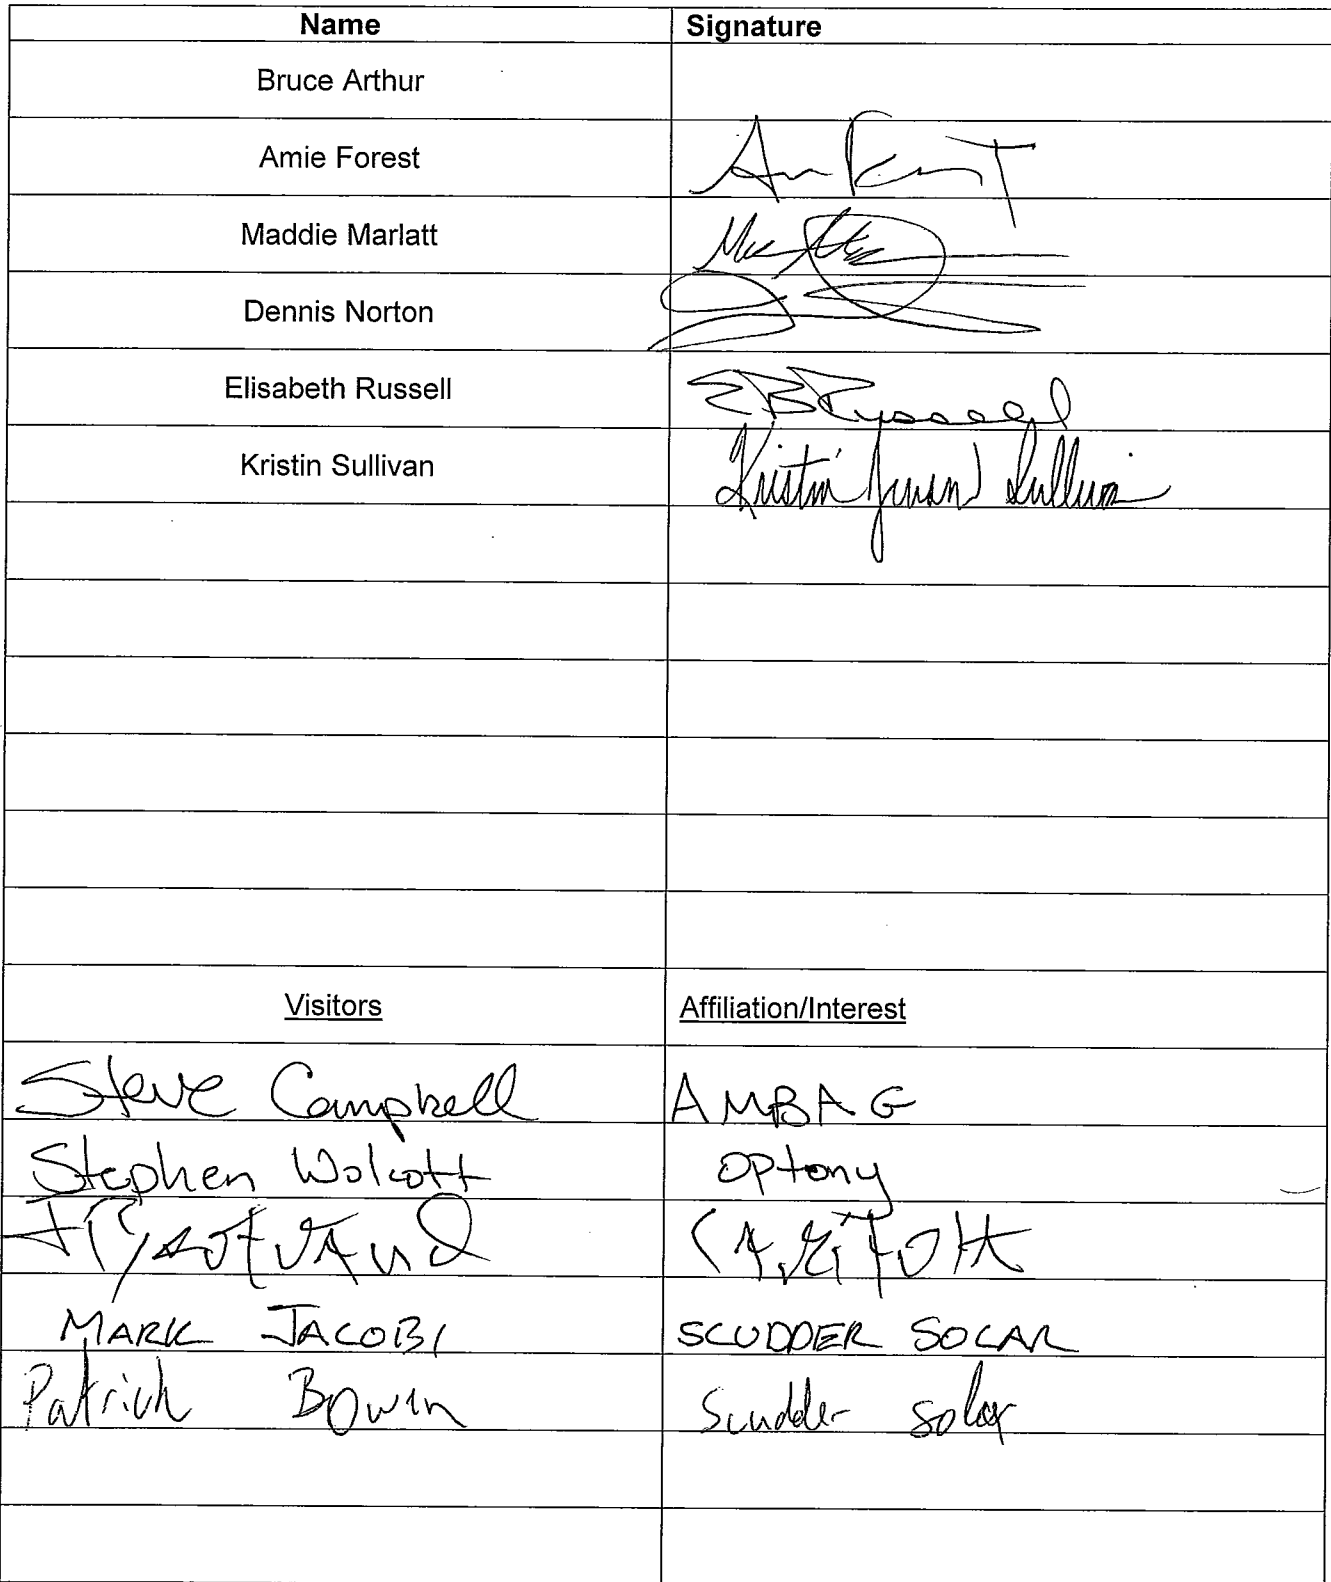 Name Signature
Bruce Arthur
Amie Forest
Maddie Marlatt
Dennis Norton
Elisabeth Russell EBRussell
Kristin Sullivan Kristin Jensen Sullivan
Visitors Affiliation/Interest
Steve Campbell AMBAG
Stephen Wolcott Optony
MARK JACOBI SCUDDER SOLAR
Patrick Bowen Scudder Solar